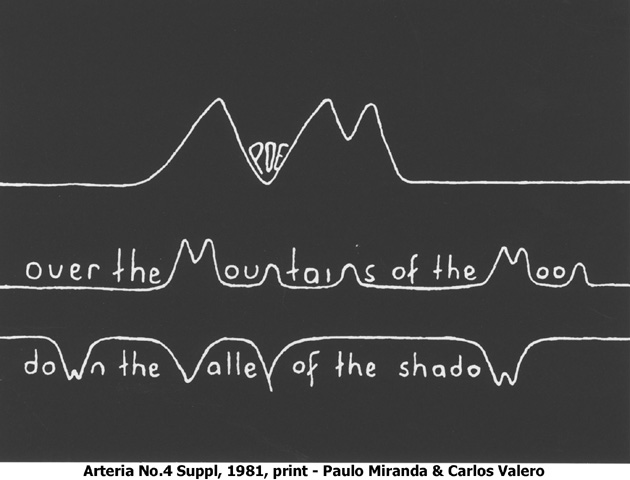 POE
over the Mountains of the Moon
down the Valley of the shadow
Arteria No.4 Suppl, 1981, print - Paulo Miranda & Carlos Valero